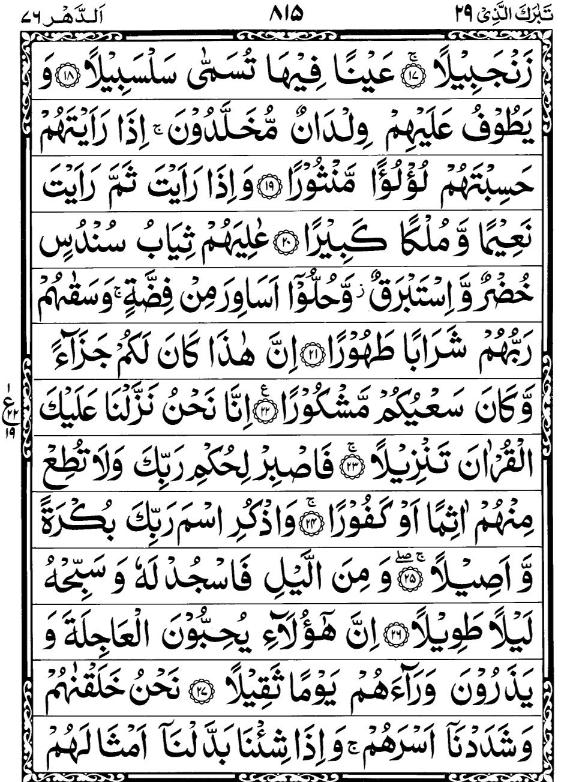 تَبٰرَكَ الَّذِیْ ۲۹ ۸۱۵ اَلدَّهْر ۷۶
زَنْجَبِیْلًا ۚ﴿۱۷﴾ عَیْنًا فِیْهَا تُسَمّٰی سَلْسَبِیْلًا ﴿۱۸﴾ وَ
یَطُوْفُ عَلَیْهِمْ وِلْدَانٌ مُّخَلَّدُوْنَ ۚ اِذَا رَاَیْتَهُمْ
حَسِبْتَهُمْ لُؤْلُؤًا مَّنْثُوْرًا ﴿۱۹﴾ وَ اِذَا رَاَیْتَ ثَمَّ رَاَیْتَ
نَعِیْمًا وَّ مُلْكًا كَبِیْرًا ﴿۲۰﴾ عٰلِیَهُمْ ثِیَابُ سُنْدُسٍ
خُضْرٌ وَّ اِسْتَبْرَقٌ ؗ وَّ حُلُّوْۤا اَسَاوِرَ مِنْ فِضَّةٍ ۚ وَ سَقٰىهُمْ
رَبُّهُمْ شَرَابًا طَهُوْرًا ﴿۲۱﴾ اِنَّ هٰذَا كَانَ لَكُمْ جَزَآءً
وَّ كَانَ سَعْیُكُمْ مَّشْكُوْرًا ﴿۲۲﴾ۧ اِنَّا نَحْنُ نَزَّلْنَا عَلَیْكَ
ع ۱ ۲۲ ۱۹
الْقُرْاٰنَ تَنْزِیْلًا ۚ﴿۲۳﴾ فَاصْبِرْ لِحُكْمِ رَبِّكَ وَ لَا تُطِعْ
مِنْهُمْ اٰثِمًا اَوْ كَفُوْرًا ۚ﴿۲۴﴾ وَ اذْكُرِ اسْمَ رَبِّكَ بُكْرَةً
وَّ اَصِیْلًا ۖۚ﴿۲۵﴾ وَ مِنَ الَّیْلِ فَاسْجُدْ لَهٗ وَ سَبِّحْهُ
لَیْلًا طَوِیْلًا ﴿۲۶﴾ اِنَّ هٰۤؤُلَآءِ یُحِبُّوْنَ الْعَاجِلَةَ وَ
یَذَرُوْنَ وَرَآءَهُمْ یَوْمًا ثَقِیْلًا ﴿۲۷﴾ نَحْنُ خَلَقْنٰهُمْ
وَ شَدَدْنَاۤ اَسْرَهُمْ ۚ وَ اِذَا شِئْنَا بَدَّلْنَاۤ اَمْثَالَهُمْ